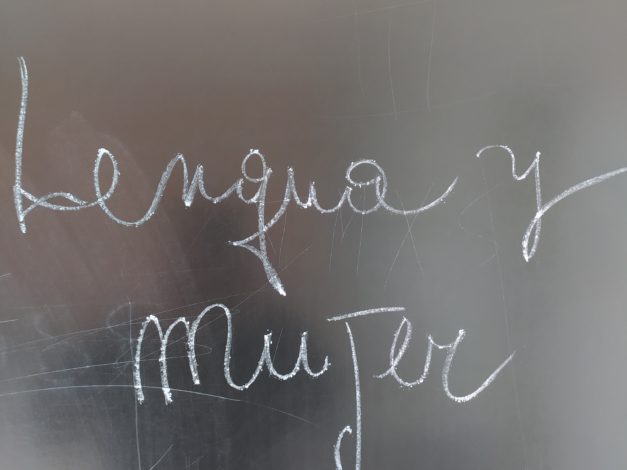 Lengua y
mujer